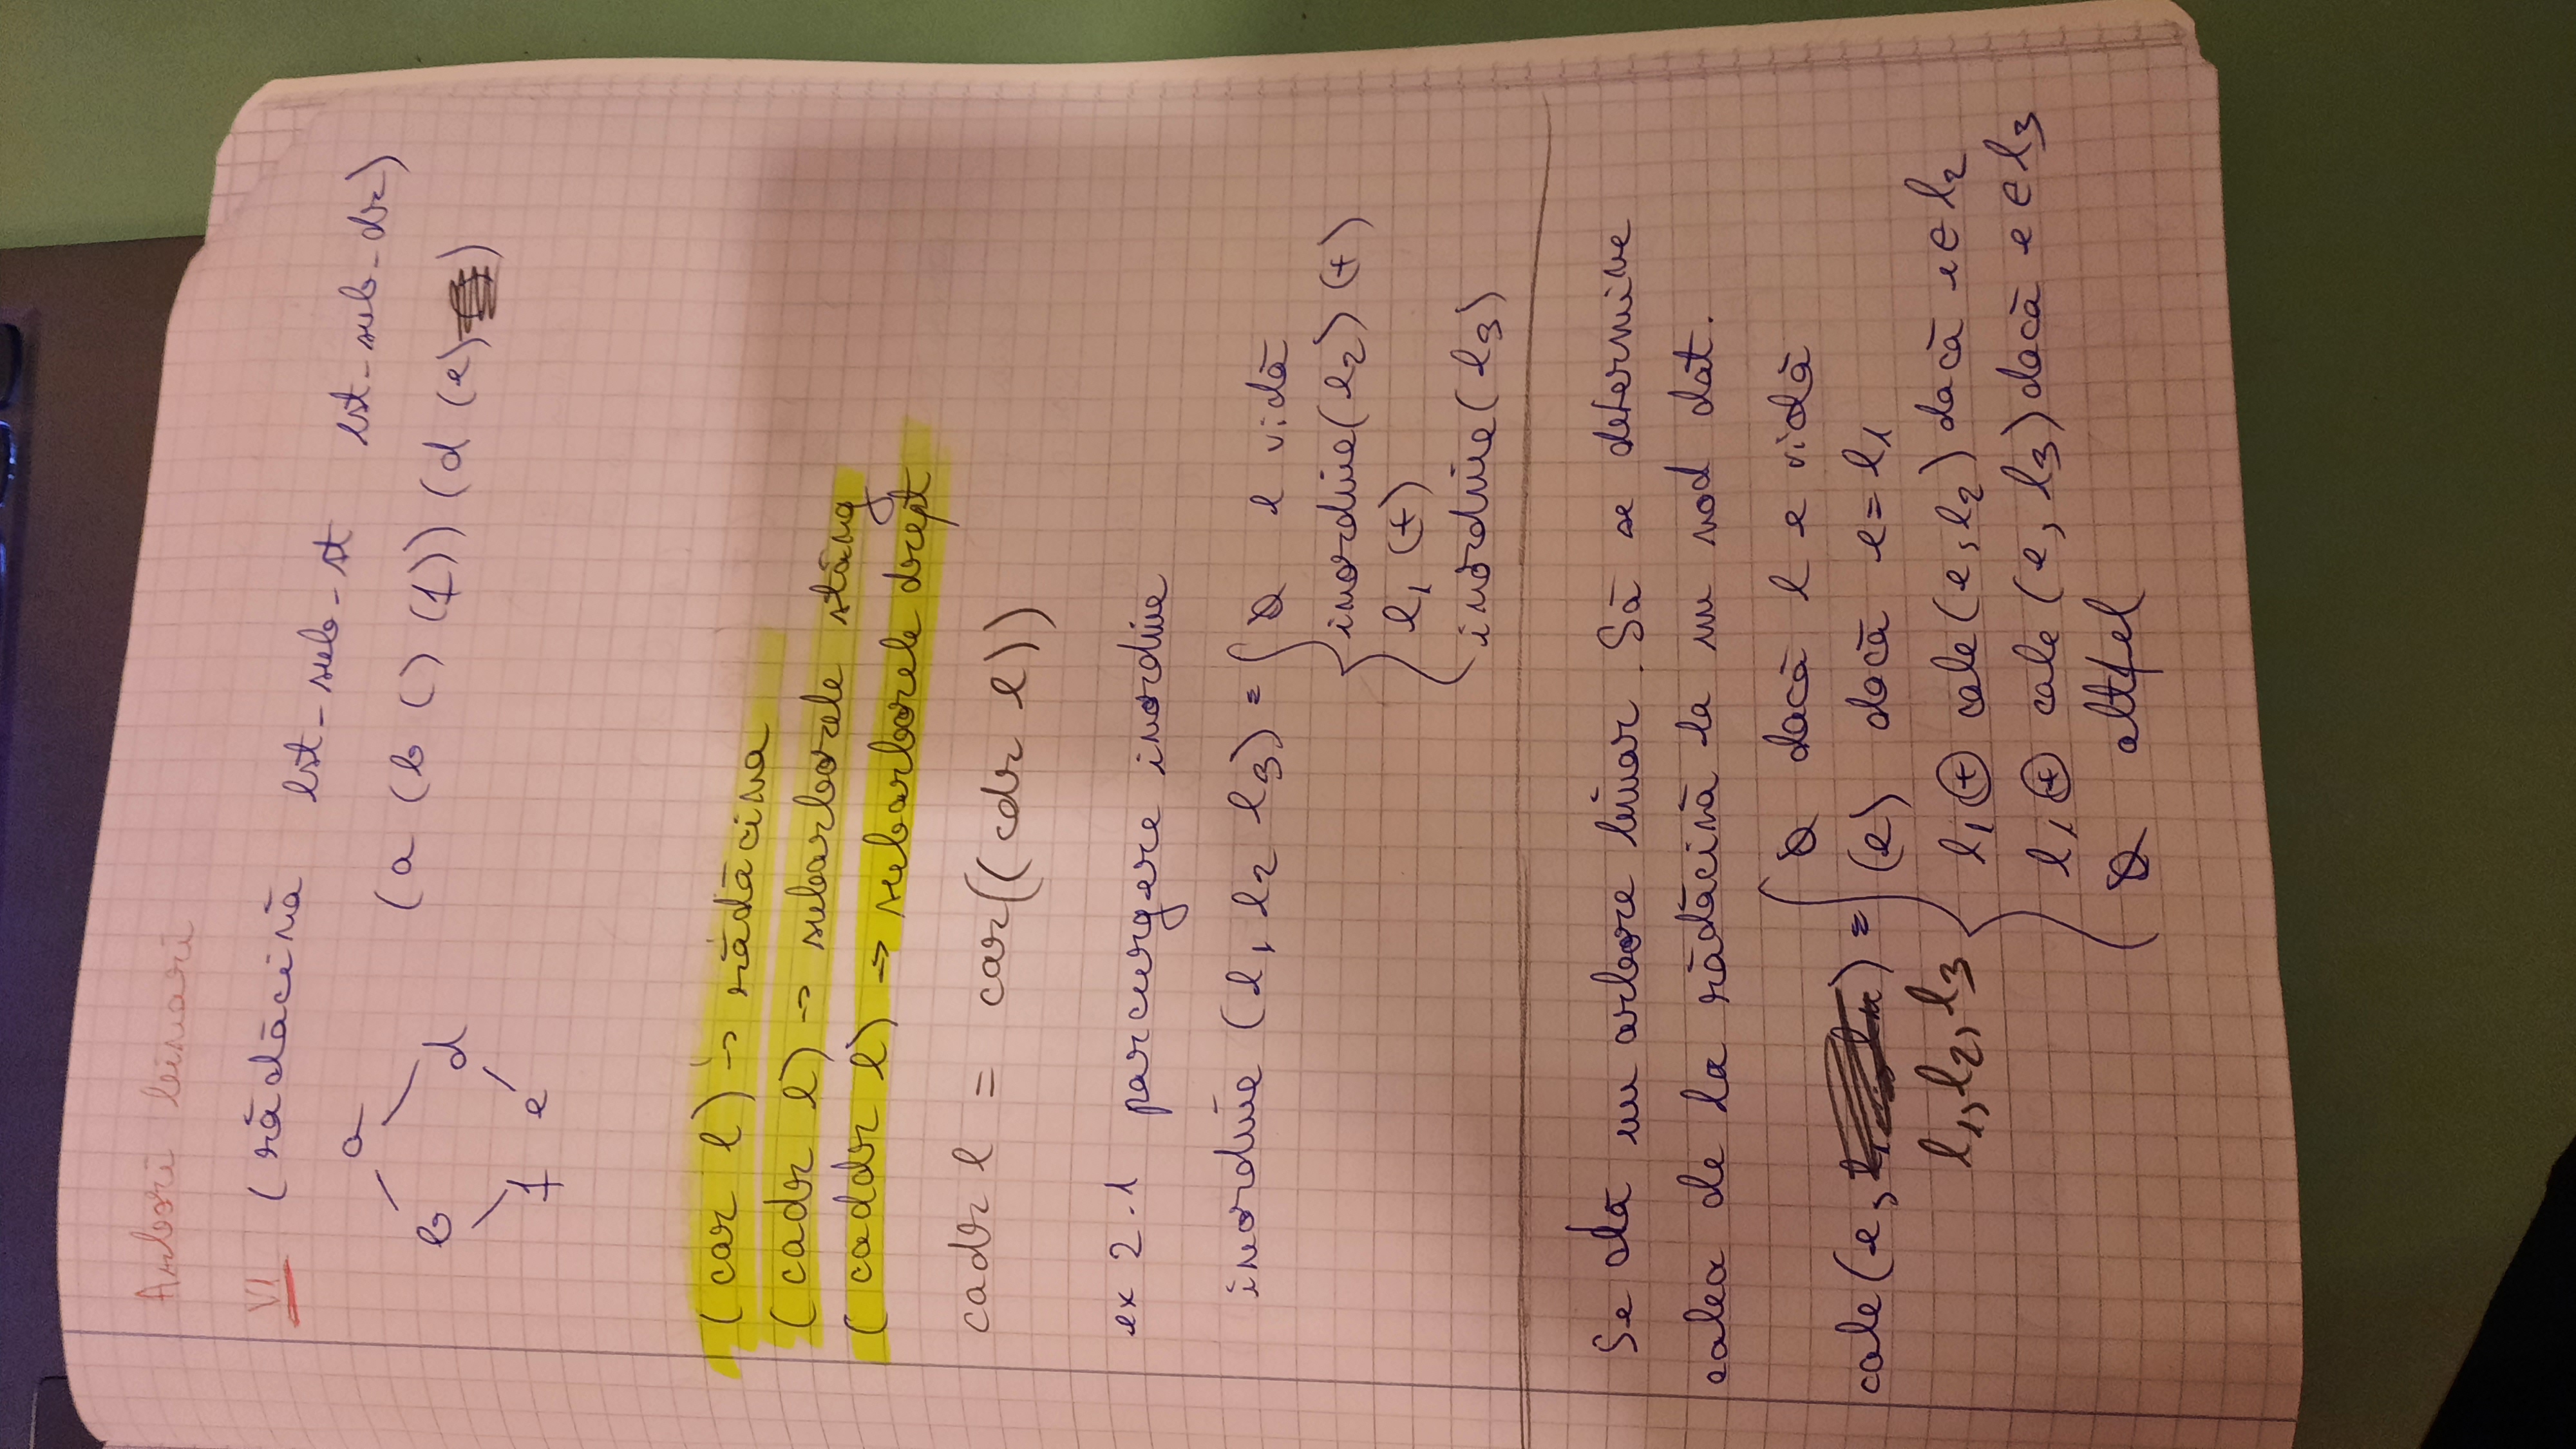 Arbori binari
V1 (rădăcină lst-sub-st lst-sub-dr)
a
b d
f e
(a (b () (f)) (d (e) )
(car l) → rădăcina
(cadr l) → subarborele stâng
(caddr l) → subarborele drept
cadr l = car((cdr l))
ex 2.1 parcurgere inordine
inordine (l1 l2 l3) = { ∅ l vidă
inordine(l2) (+)
l1 (+)
inordine(l3)
Se dă un arbore binar. Să se determine
calea de la rădăcină la un nod dat.
cale(e, l1, l2, l3) = { ∅ dacă l e vidă
(e) dacă e=l1
l1 ⊕ cale(e, l2) dacă e∈l2
l1 ⊕ cale(e, l3) dacă e∈l3
∅ altfel